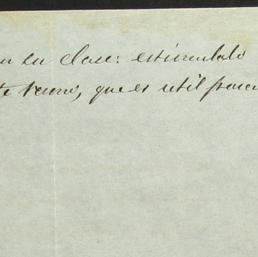 en su clase: estimulalo
te ramo, que es util para